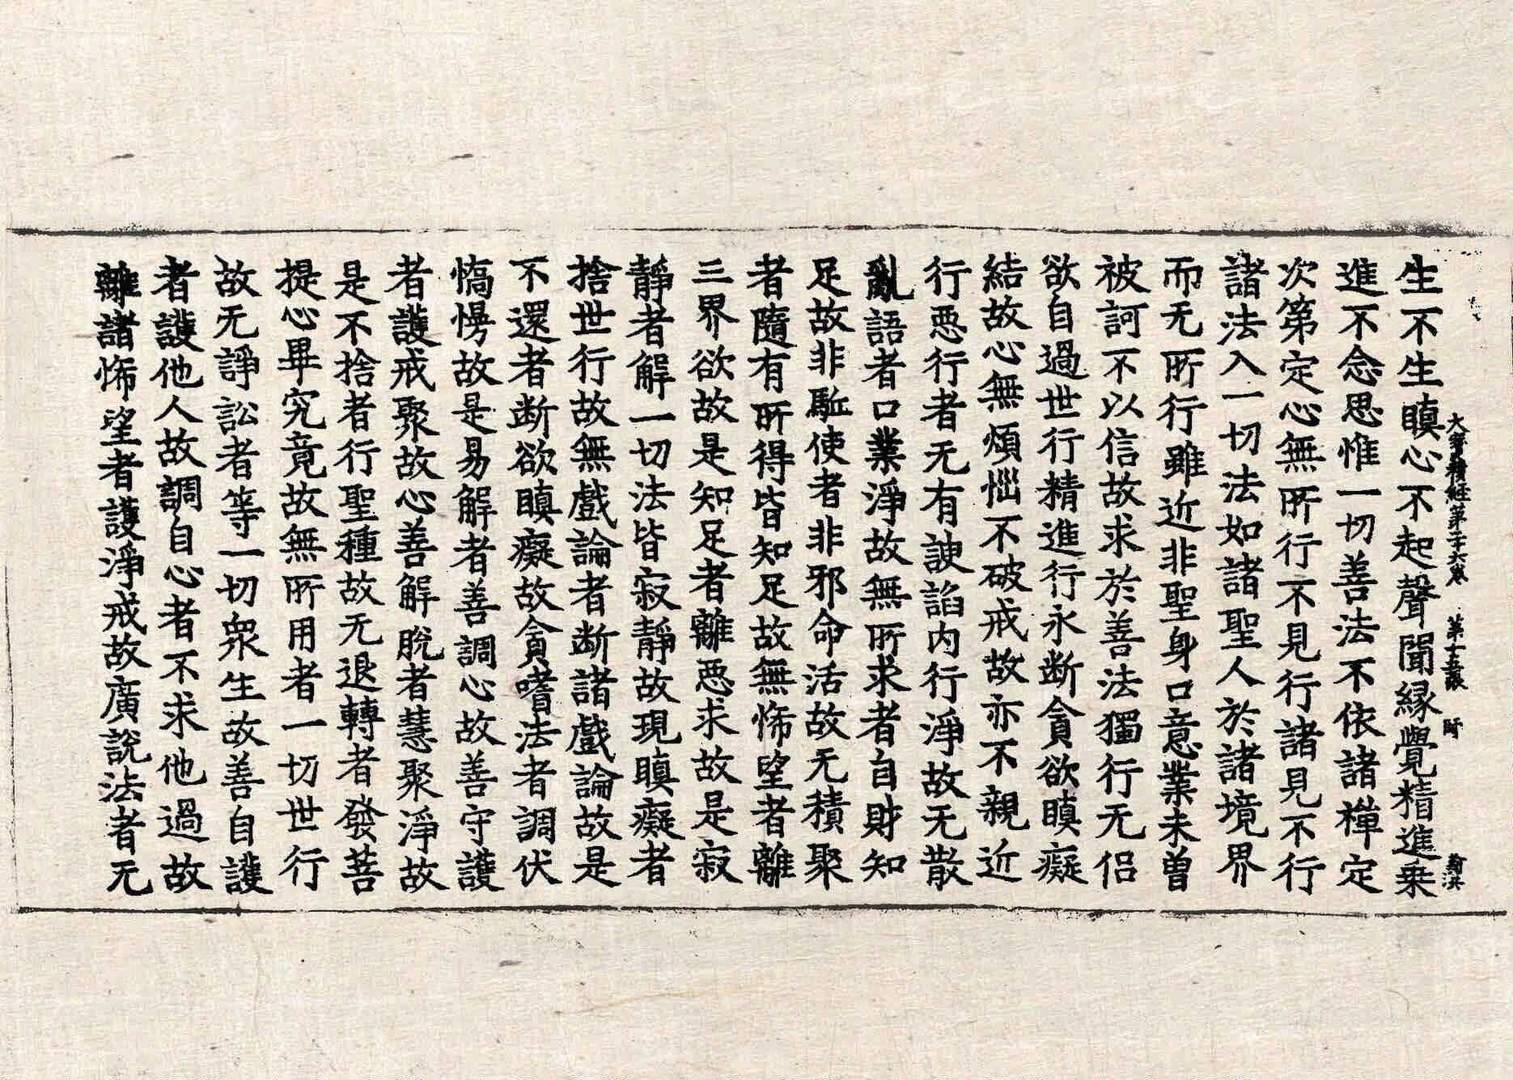 大寶積經第二十六卷 第十五張
生不生瞋心不起聲聞緣覺精進乗
進不念思惟一切善法不依諸禪定
次第定心無所行不見行諸見不行
諸法入一切法如諸聖人於諸境界
而无所行雖近非聖身口意業未曽
被訶不以信故求於善法獨行无侣
欲自過世行精進行永断貪欲瞋癡
結故心無煩惱不破戒故亦不親近
行惡行者无有諛諂内行淨故无散
亂語者口業淨故無所求者自財知
足故非駈使者非邪命活故无積聚
者隨有所得皆知足故無怖望者離
三界欲故是知足者離惡求故是寂
靜者解一切法皆寂靜故現瞋癡者
捨世行故無戲論者断諸戲論故是
不還者断欲瞋癡故貪嗜法者調伏
憍慢故是易解者善調心故善守護
者護戒聚故心善解脫者慧聚淨故
是不捨者行聖種故无退轉者發菩
提心畢究竟故無所用者一切世行
故无諍訟者等一切衆生故善自護
者護他人故調自心者不求他過故
離諸怖望者護淨戒故廣說法者无